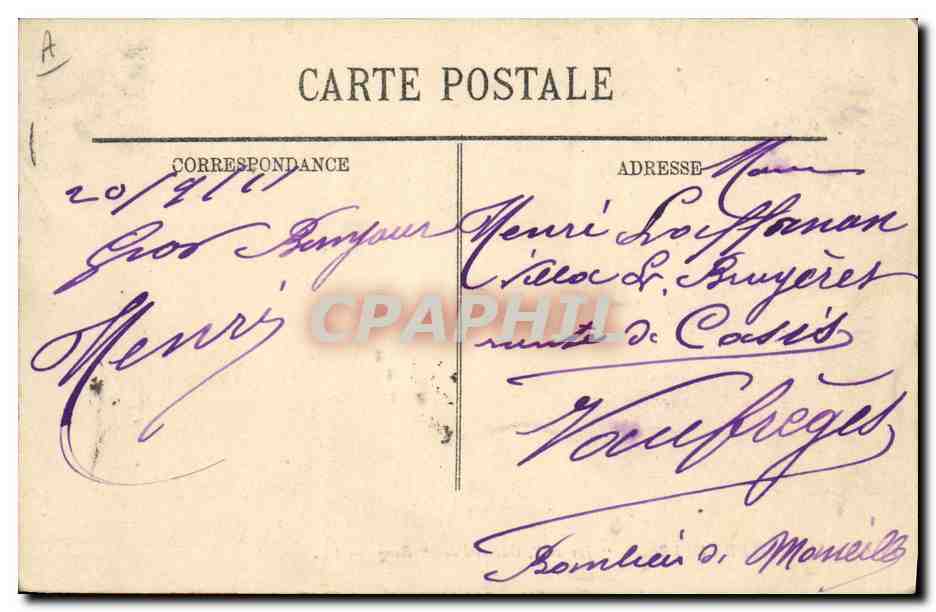 A
CARTE POSTALE
CORRESPONDANCE
20/9/11
Gros Bonjour
Henri
ADRESSE
Henri
Villa
route de Cassis
Vaufrèges
Banlieu de Marseille
CPAPHIL